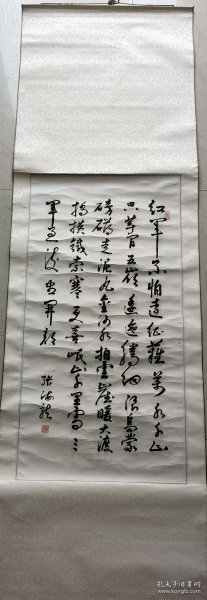 红军不怕遠征難萬水千山
只等闲五嶺逶迤腾细浪烏蒙
磅礴走泥丸金沙水拍雲崖暖大渡
橋横鐵索寒更喜岷山千里雪三
军过後尽開颜
孔夫子旧书网